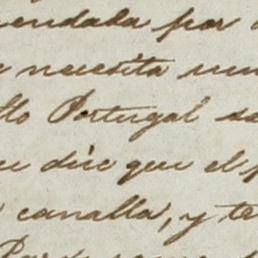 endada por
necesita un
llo Portugal se
ue dice que el
canalla, y te